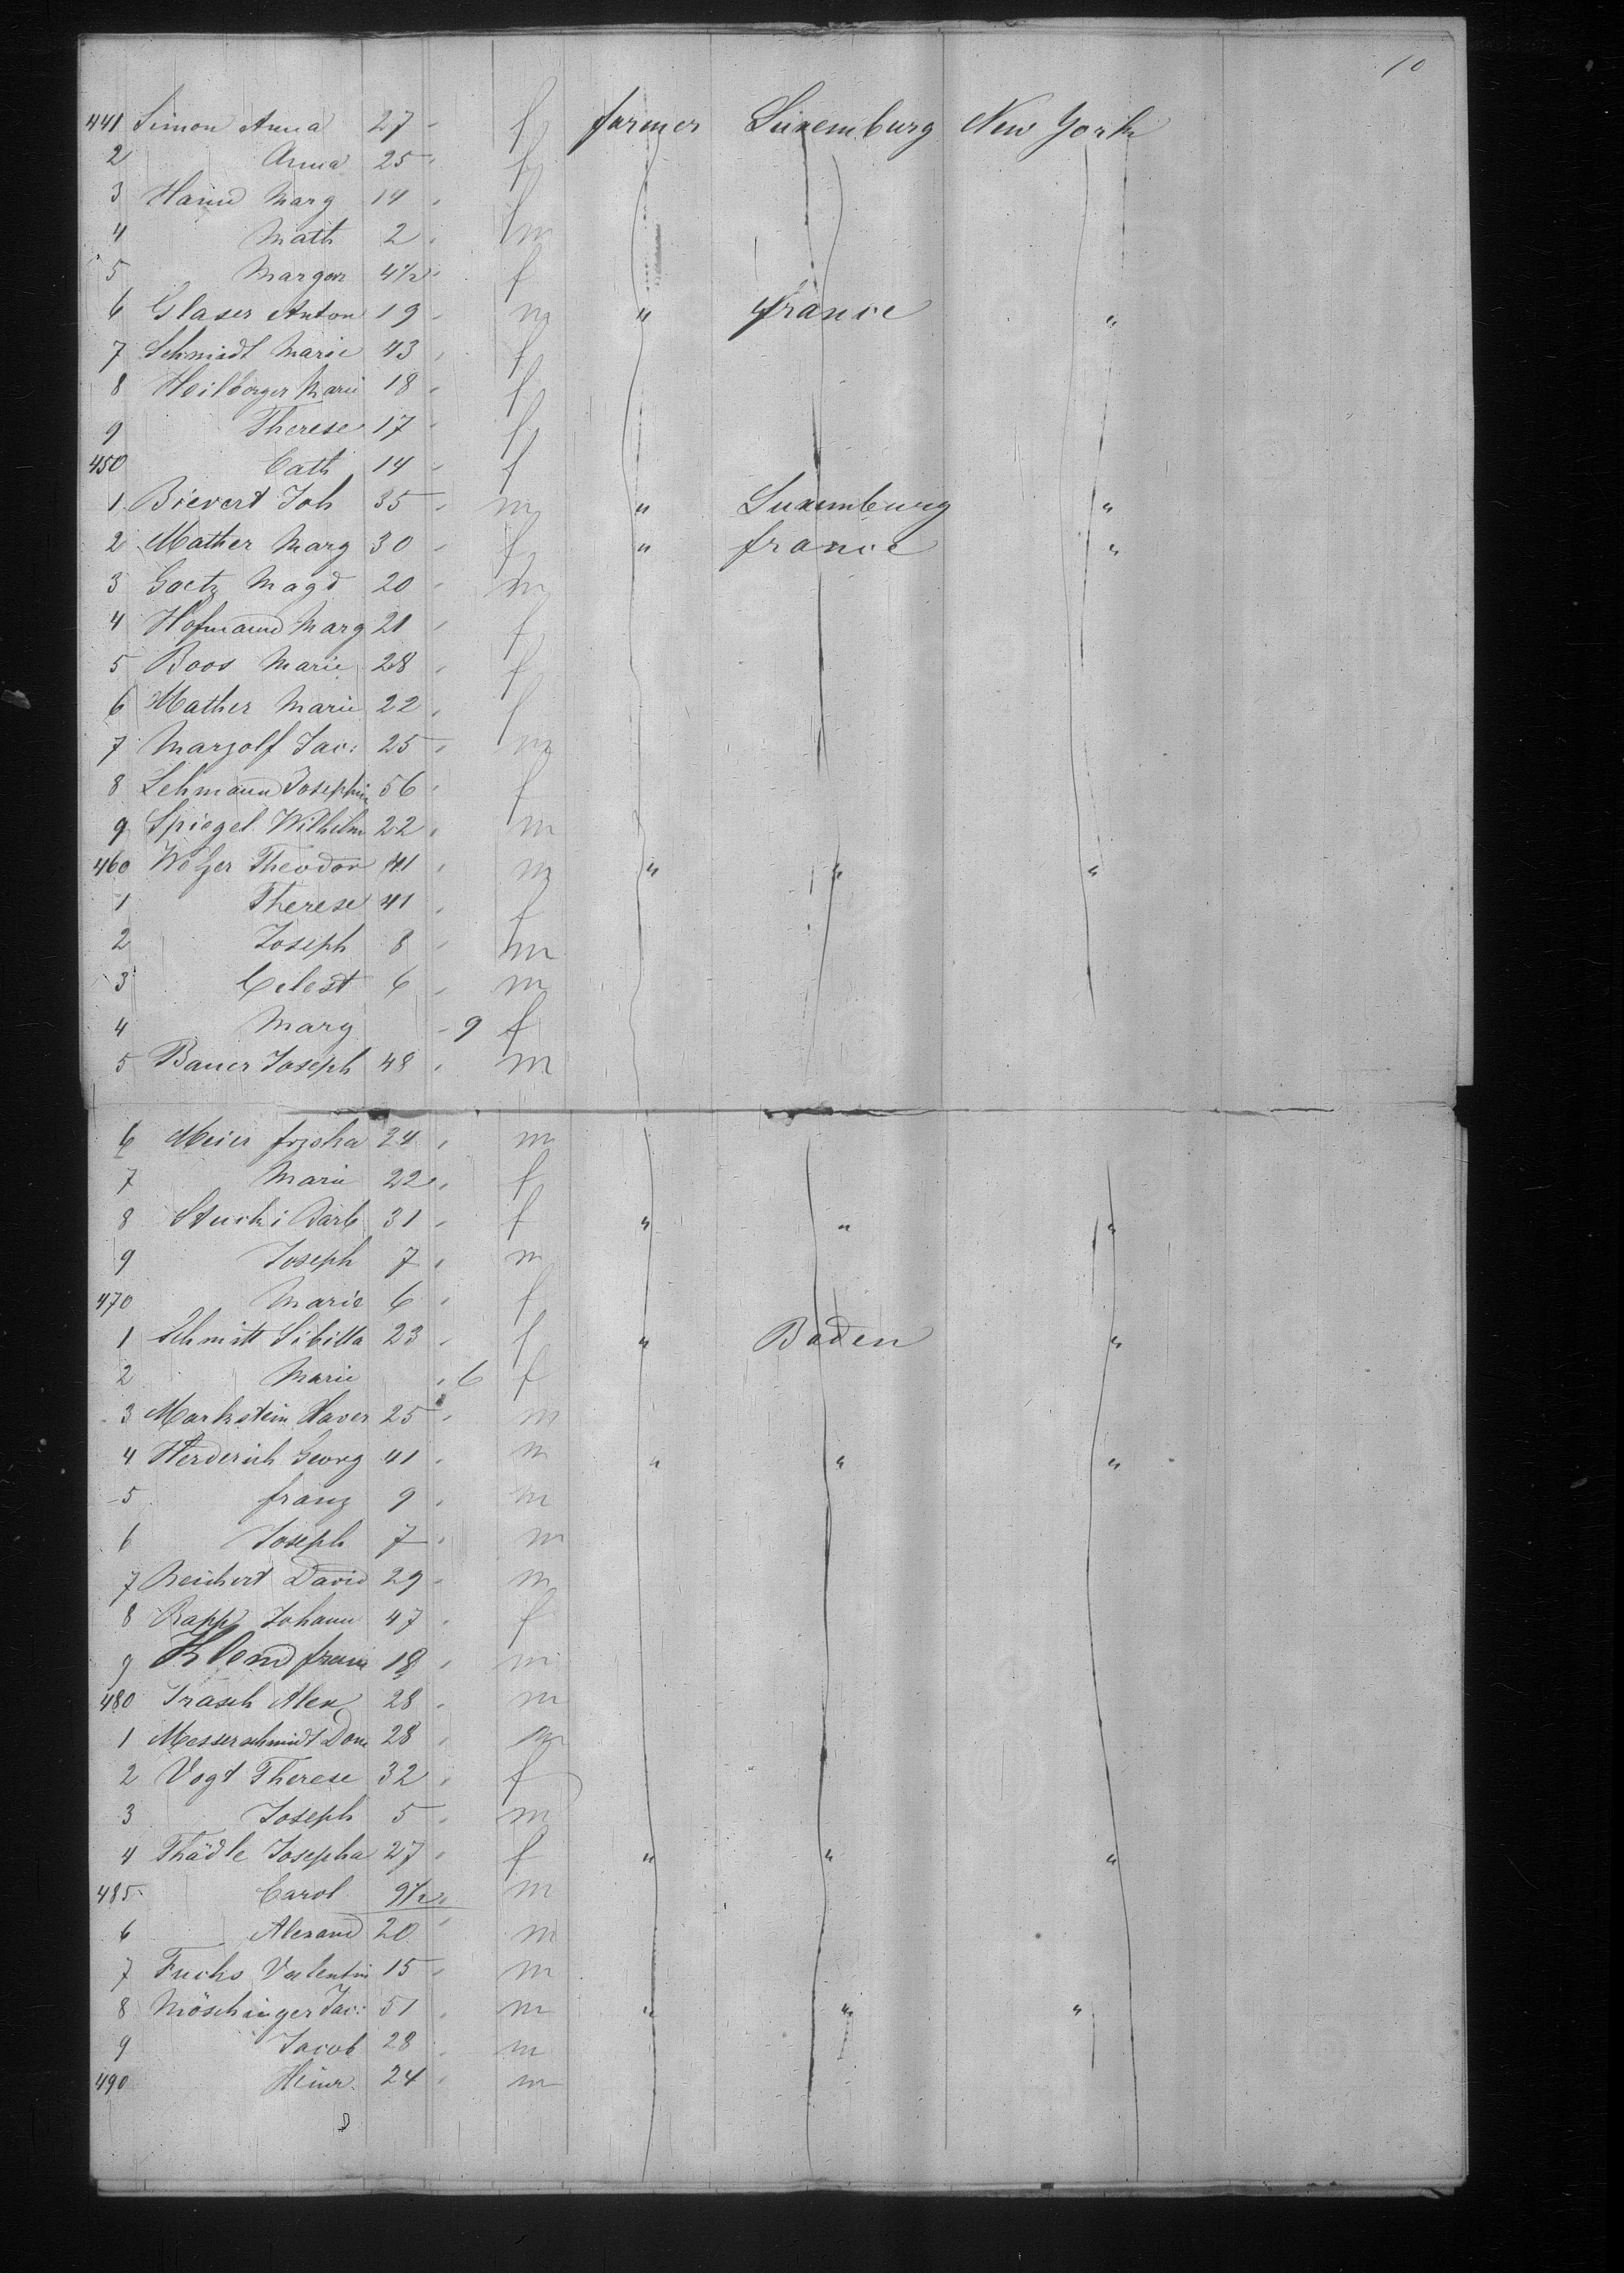 10
441 Simon Anna 27 " f farmer Luxemburg New York
2 Anna 25 " f
3 Hamd Marg 14 " f
4 Math 2 " m
5 Margar 4 1/2 " f
6 Glaser Anton 19 " m " france "
7 Schmidt Marie 43 " f
8 Heilborger Marie 18 " f
9 Therese 17 " f
450 Cath 14 " f
1 Bievert Joh 35 " m " Luxemburg "
2 Mather Marg 30 " f " france "
3 Goetz Magd 20 " m
4 Hofmannd Marg 21 " f
5 Boos Marie 28 " f
6 Mather Marie 22 " f
7 Marzolf Jac: 25 " m
8 Lehmann Josephin 56 " f
9 Spiegel Wilhelm 22 " m
460 Theodor 41 " m " " "
1 Therese 41 " f
2 Joseph 8 " m
3 Celest 6 " m
4 Marg " 9 f
5 Bauer Joseph 48 " m
6 Meier 24 " m
7 Marie 22 " f
8 Stucki Barb 31 " f " " "
9 Joseph 7 " m
470 Marie 6 " f
1 Schmitt Sibilla 23 " f " Baden "
2 Marie " 6 f
3 Markstein Xaver 25 " m
4 Herderich Georg 41 " m " " "
5 franz 9 " m
6 Joseph 7 " m
7 Reichert David 29 " m
8 Rapp Johann 47 " f
9 18 " m
480 Trasch Alex 28 " m
1 Messerschmidt Dom 28 " m
2 Vogt Therese 32 " f
3 Joseph 5 " m
4 Thädle Josepha 27 " f " " "
485 Carol 9 1/2 " m
6 Alexand 20 " m
7 Fuchs Valentin 15 " m
8 Möschinger Jac: 51 " m " " "
9 Jacob 28 " m
490 Heinr. 24 " m